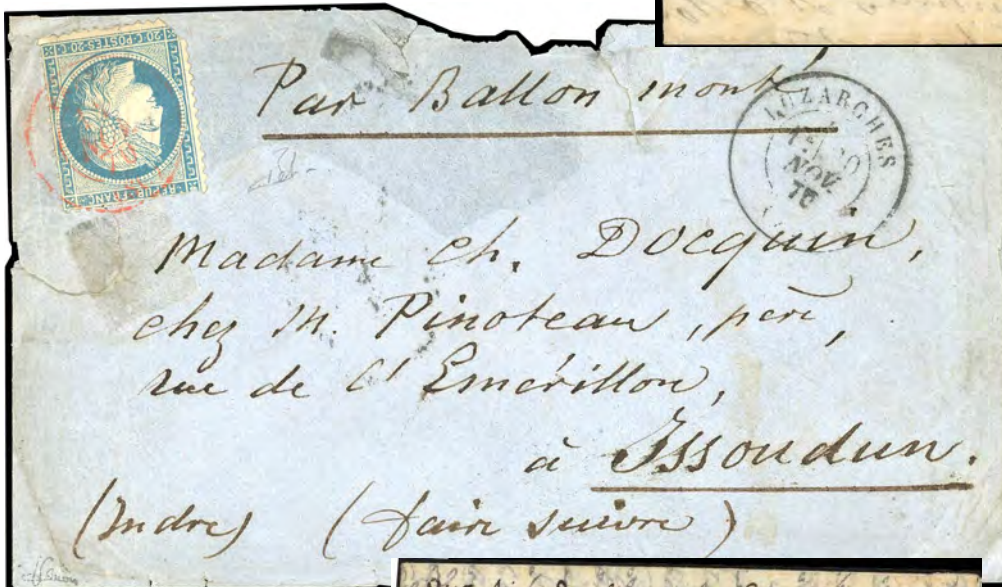 20 C·POSTES·20 C
REPUB·FRANC
Par Ballon monté
LUZARCHES
NOV.
70
Madame Ch. Docquin,
chez M. Pinoteau, père,
rue de l'Emérillon,
à Issoudun.
(Indre) (faire suivre)